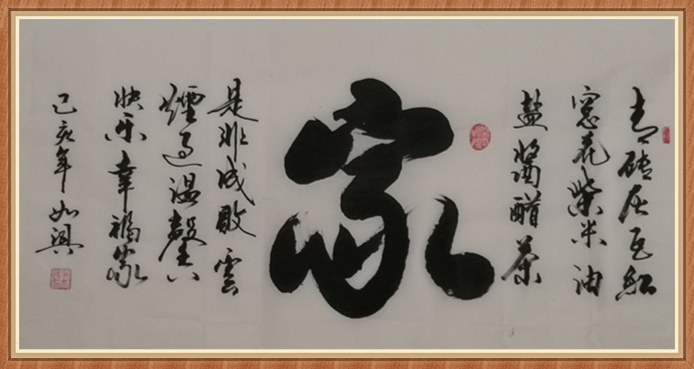 青砖灰瓦红
窓花柴米油
盐醬醋茶
家
是非成败雲
煙过温馨
快乐幸福家
己亥年 如興